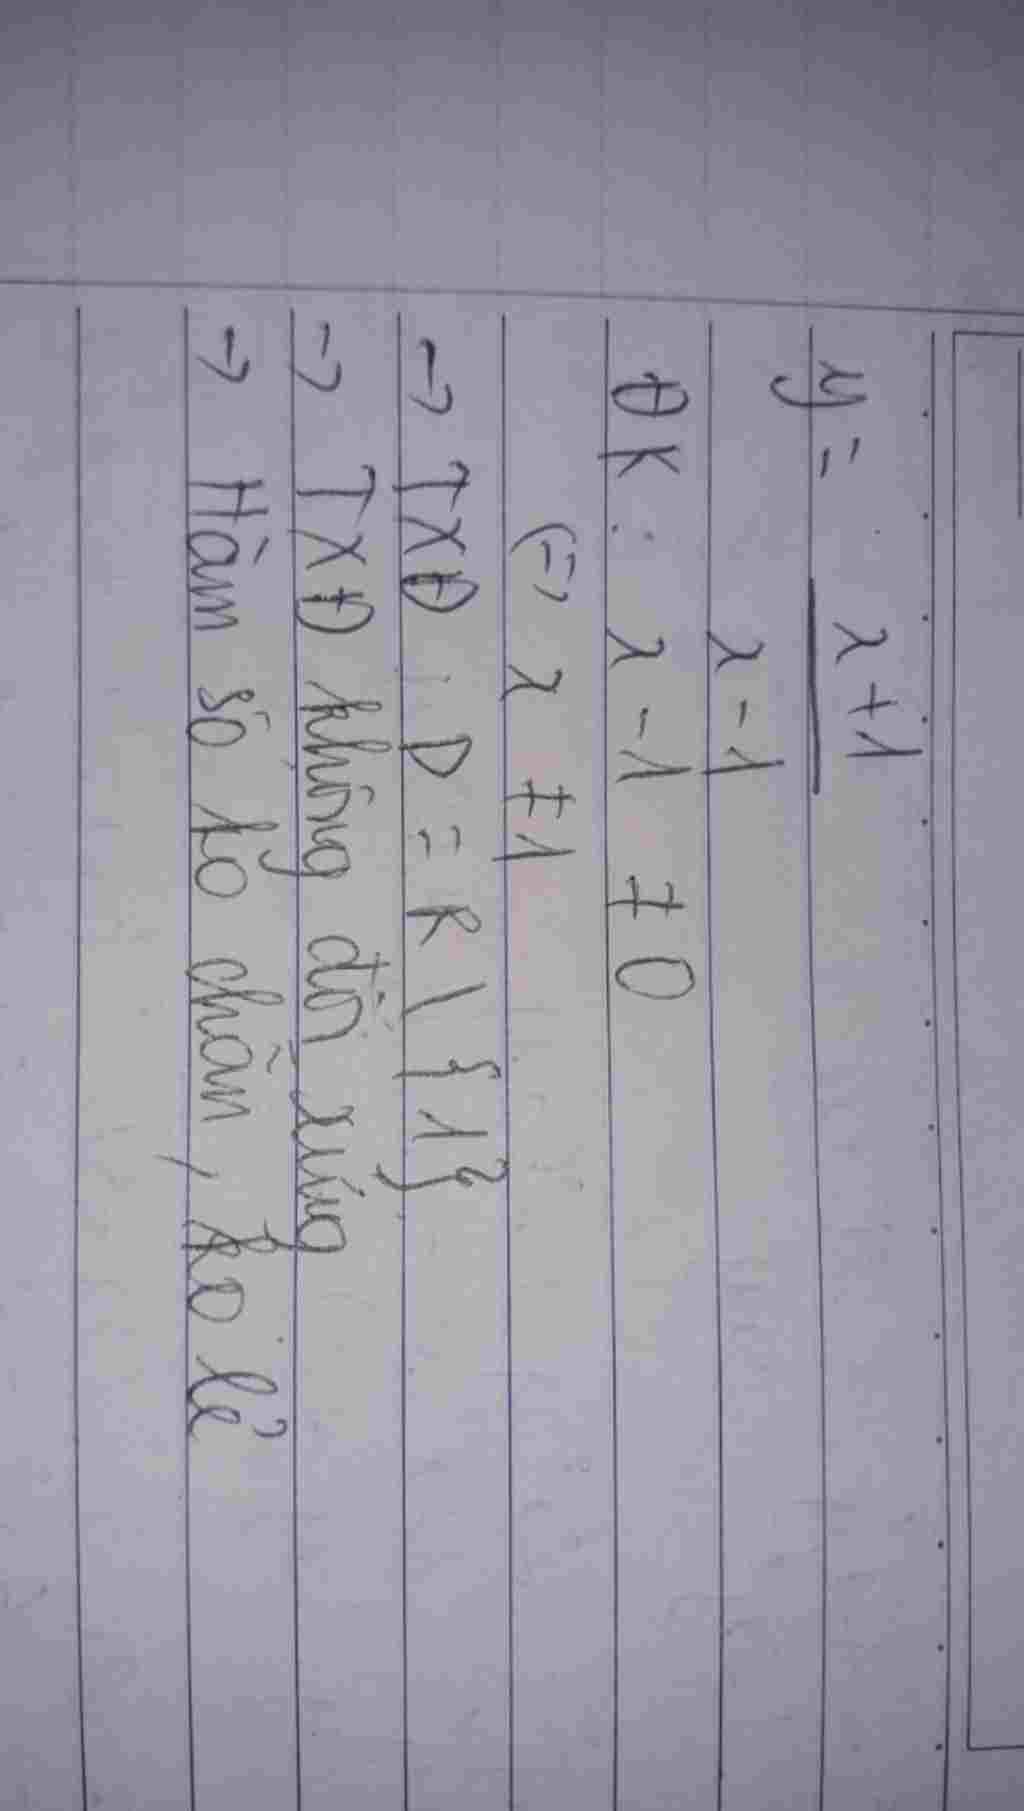 y = x+1
x-1
ĐK: x-1 ≠ 0
(=) x ≠ 1
-> TXĐ: D = R \ {1}
-> TXĐ không đối xứng
-> Hàm số ko chẵn, ko lẻ